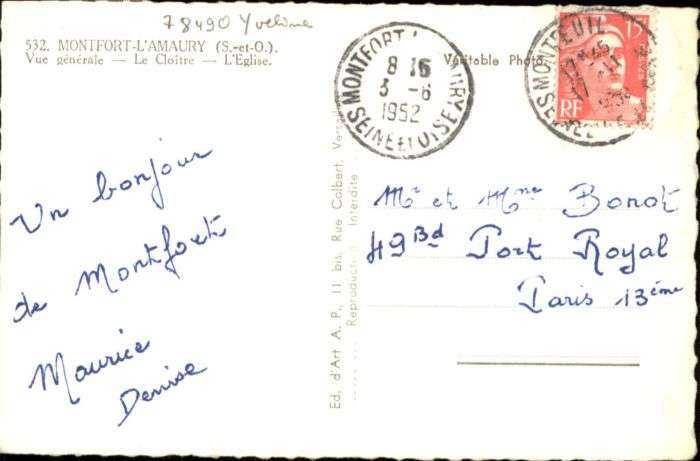 78490 Yvelines
532. MONTFORT-L'AMAURY (S.-et-O.).
Vue générale — Le Cloître — L'Église.
Véritable Photo
MONTFORT L'AMAURY
8 16
3 - 6
1952
SEINE ET OISE
MONTREUIL
SEINE
15
RF
Un bonjour
de Montfort
Maurice
Denise
Ed. d'Art A. P., 11 bis, Rue Colbert, Versailles
Reproduction Interdite
Mr et Mme Bonot
49 Bd Port Royal
Paris 13ème